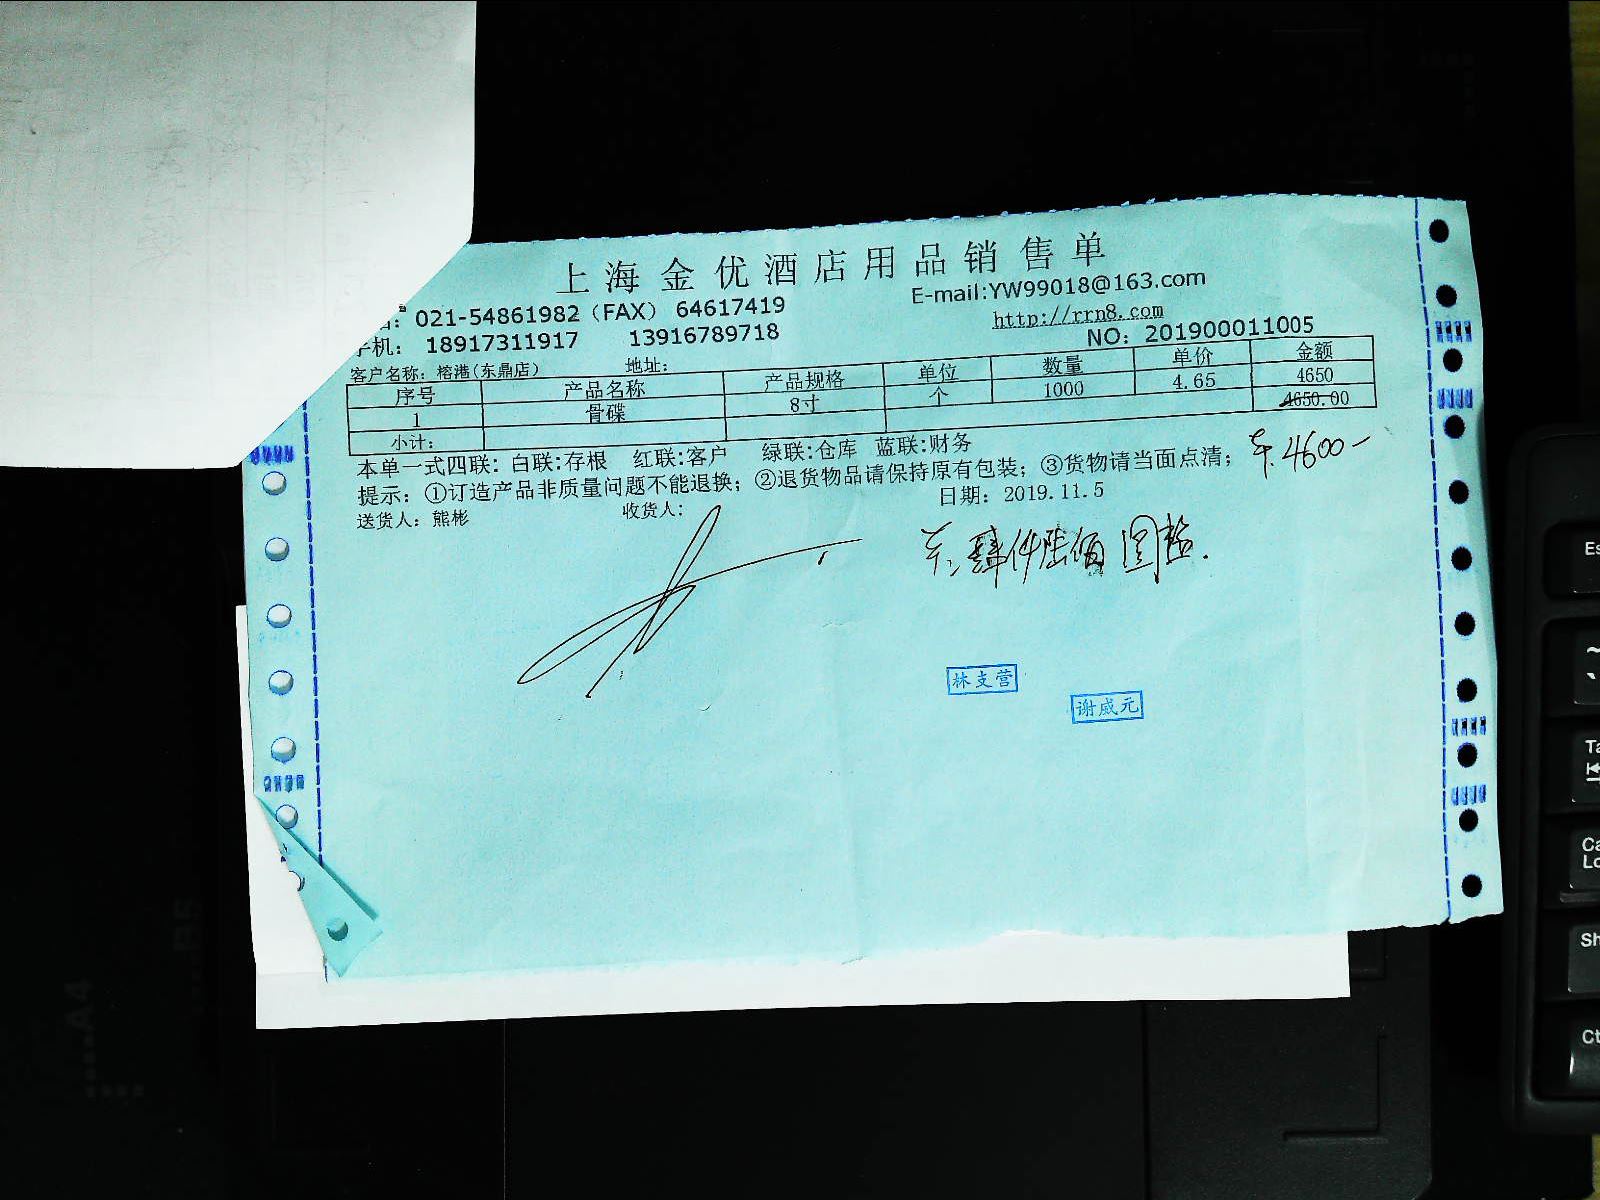 上海金优酒店用品销售单
021-54861982（FAX） 64617419
E-mail:YW99018@163.com
http://rrn8.com
手机： 18917311917 13916789718
NO：201900011005
客户名称：榕港(东鼎店) 地址：
序号 产品名称 产品规格 单位 数量 单价 金额
1 骨碟 8寸 个 1000 4.65 4650
小计： 4650.00
本单一式四联：白联:存根 红联:客户 绿联:仓库 蓝联:财务
4600-
提示：①订造产品非质量问题不能退换；②退货物品请保持原有包装；③货物请当面点清；
送货人：熊彬 收货人： 日期：2019.11.5
肆仟陆佰圆整.
林支营
谢威元
A4
B5
Es
~
Ta
Ca
Lo
Sh
Ct